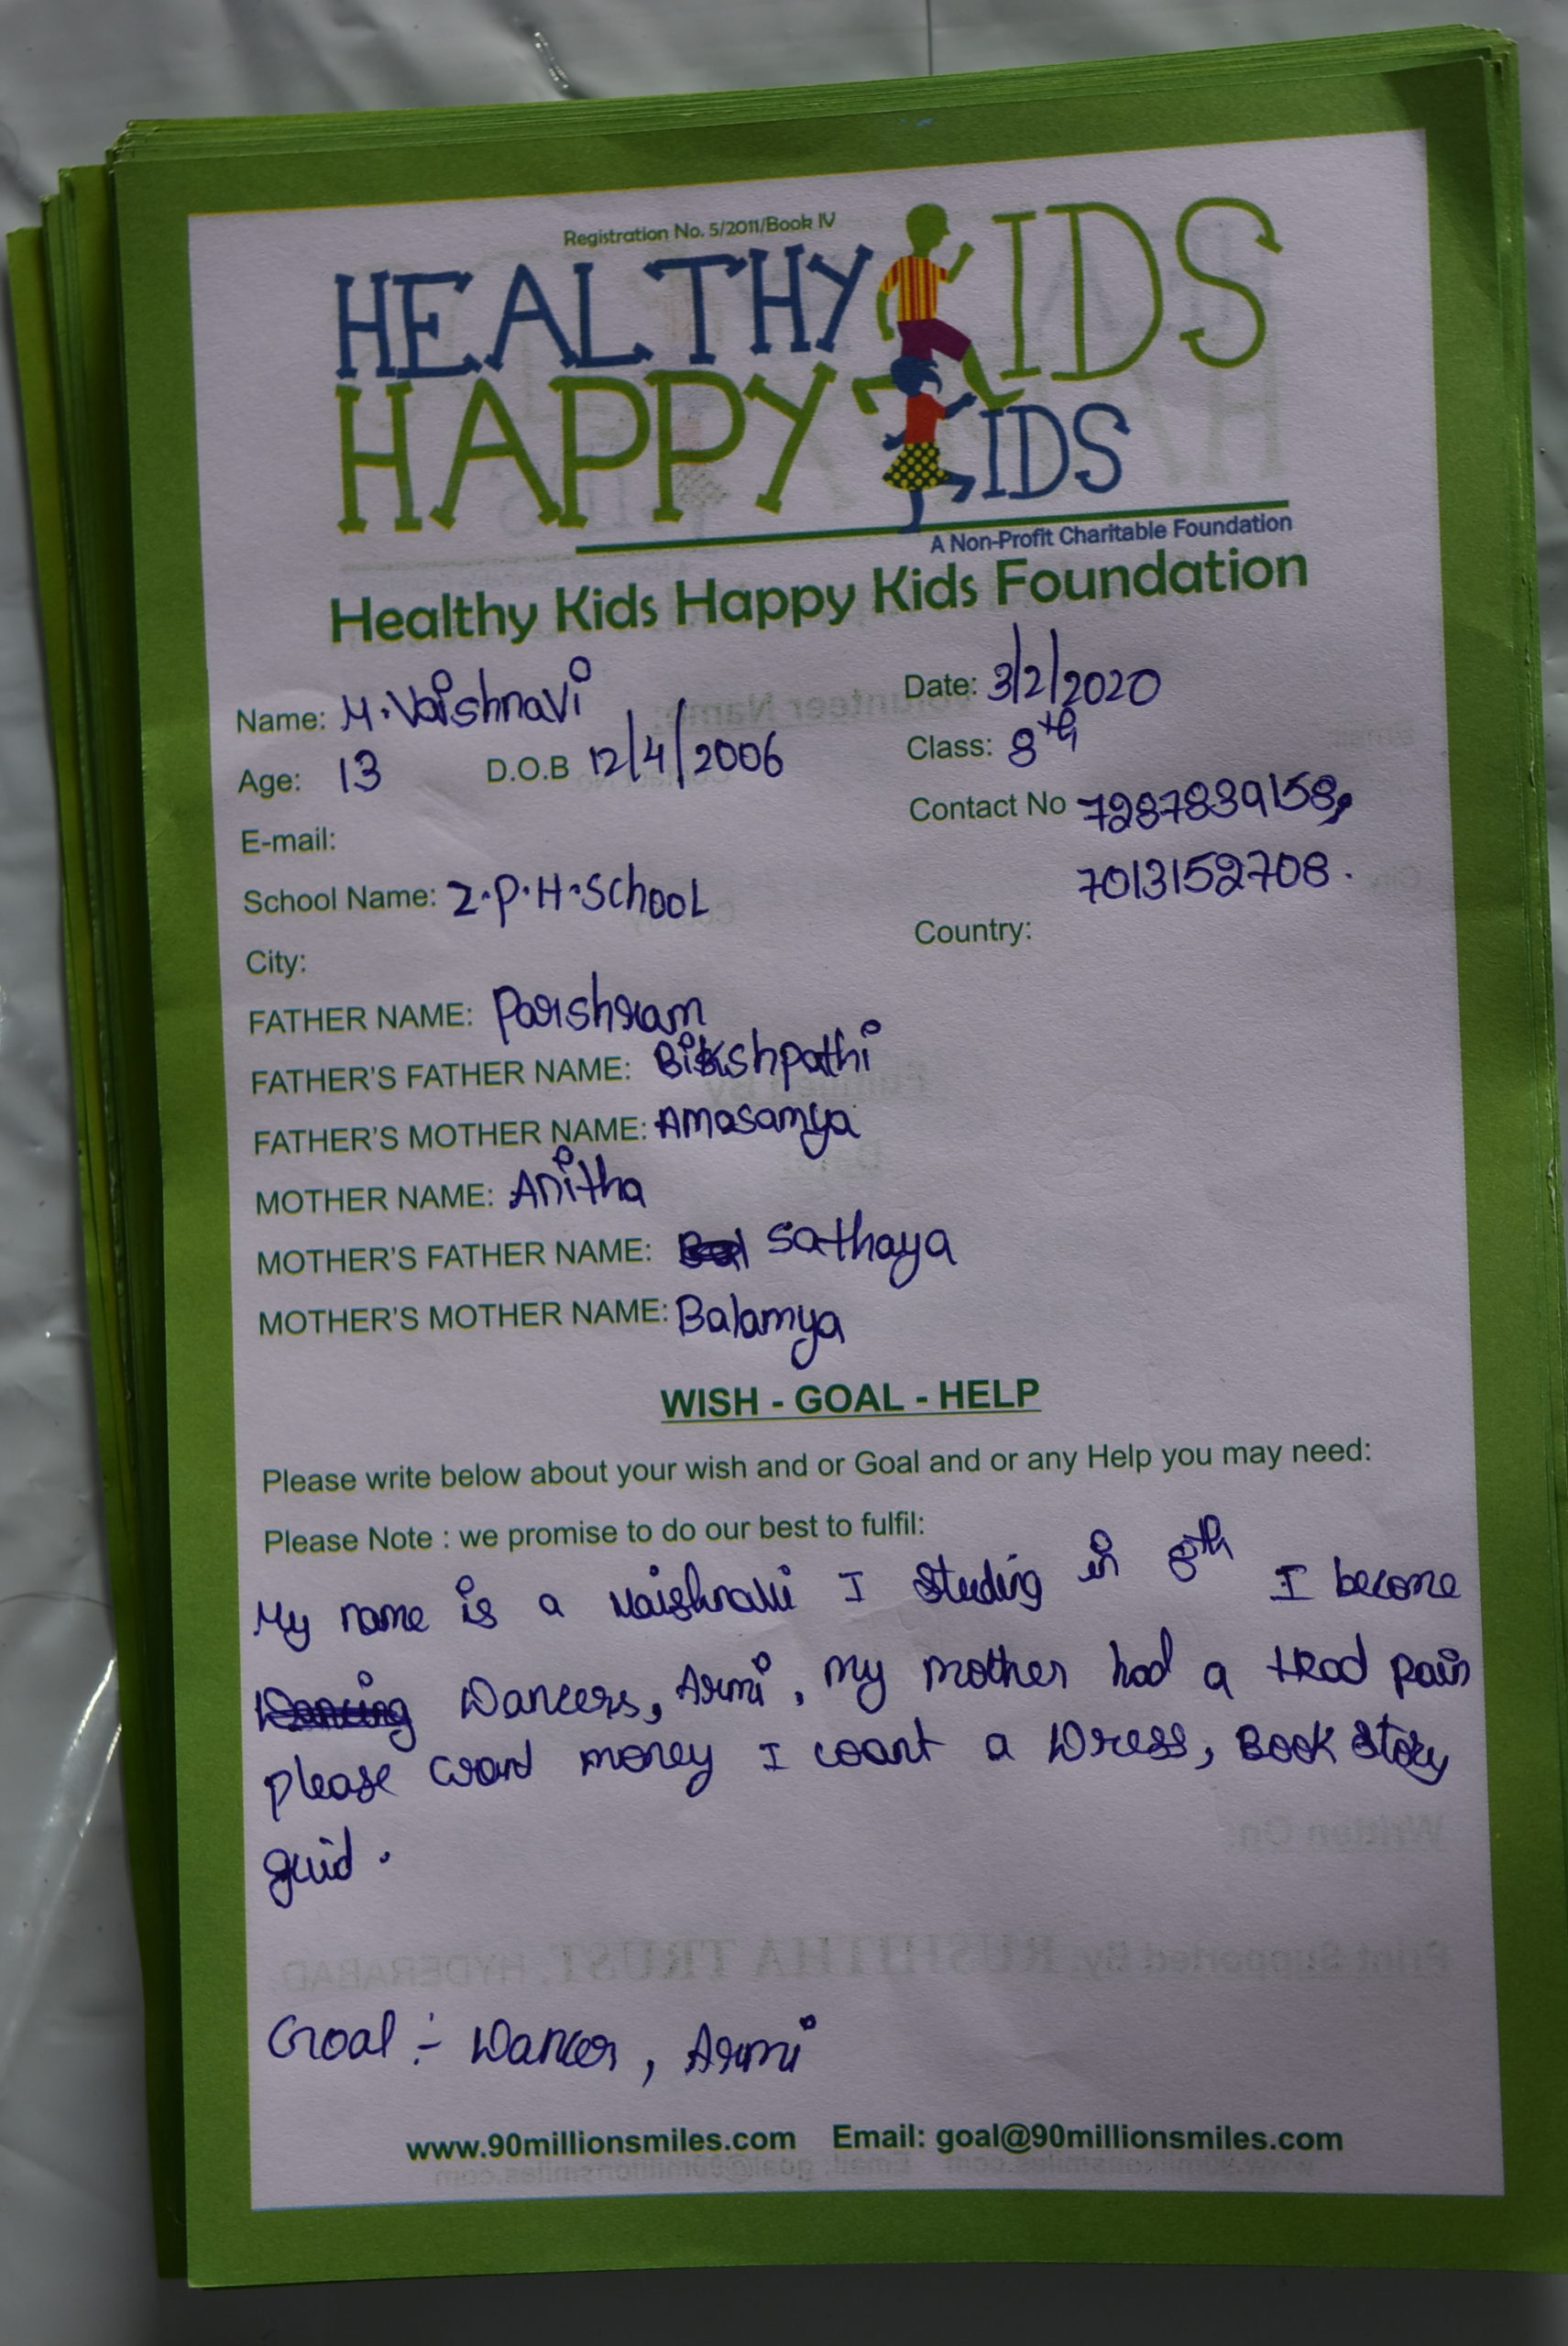 Registration No. 5/2011/Book IV
HEALTHY KIDS
HAPPY KIDS
A Non-Profit Charitable Foundation
Healthy Kids Happy Kids Foundation
Name: M. Vaishnavi
Date: 3/2/2020
Age: 13 D.O.B 12/4/2006
Class: 8th
E-mail:
Contact No 7287839158,
7013152708.
School Name: Z.P.H.School
City:
Country:
FATHER NAME: Parshram
FATHER'S FATHER NAME: Bikshpathi
FATHER'S MOTHER NAME: Amasamya
MOTHER NAME: Anitha
MOTHER'S FATHER NAME: Sathaya
MOTHER'S MOTHER NAME: Balamya
WISH - GOAL - HELP
Please write below about your wish and or Goal and or any Help you may need:
Please Note : we promise to do our best to fulfil:
My name is a Vaishnavi I studing in 8th I become
Dancers, Armi, my mother had a Head pain
please money I want a Dress, Book Story
guid.
Goal :- Dancer, Armi
www.90millionsmiles.com Email: goal@90millionsmiles.com